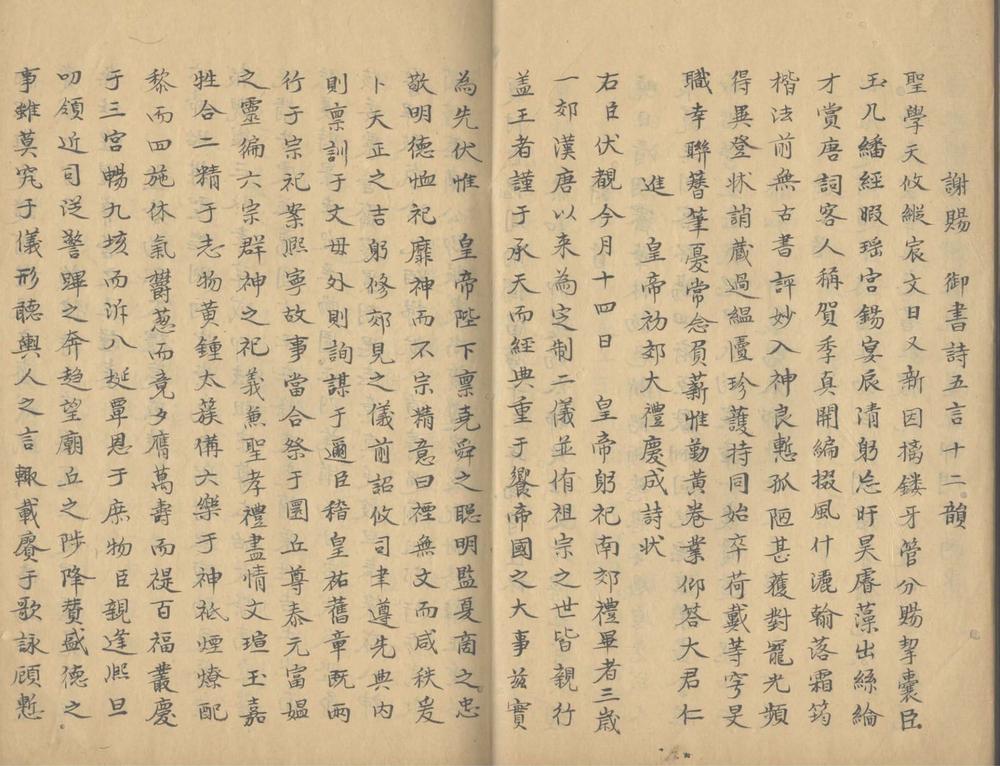 謝賜　御書詩五言十二韻
聖學天攸縱宸文日又新因摛鏤牙管分賜挈囊臣
玉几繙經暇瑶宮錫宴辰清躬忘旰昊膚藻出絲綸
才賞唐詞客人稱賀季真開編掇風什灑翰落霜筠
楷法前無古書評妙入神良慙孤陋甚獲對寵光頻
得異登狀誚蔵過緼懮珍護持同始卒荷戴等穹旻
職幸聯簪筆憂常念負薪惟勤黄卷業仰答大君仁
進　皇帝初郊大禮慶成詩状
右臣伏覩今月十四日　皇帝躬祀南郊禮畢者三歳
一郊漢唐以来為定制二儀並侑祖宗之世皆親行
盖王者謹于承天而經典重于饗帝國之大事兹實
為先伏惟　皇帝陛下禀堯舜之聡明監夏商之忠
敬明德恤祀靡神而不宗精意曰禋無文而咸秩爰
卜天正之吉躬修郊見之儀前詔攸司聿遵先典内
則禀訓于文母外則詢謀于邇臣稽皇祐舊章既兩
行于宗祀案熙寧故事當合祭于圜丘尊泰元富媪
之靈徧六宗群神之祀義兼聖孝禮盡情文瑄玉嘉
牲合二精于志物黄鍾太簇備六樂于神祗煙燎配
藜而四施休氣欝葱而竟夕膺萬壽而禔百福叢慶
于三宮暢九垓而泝八埏覃恩于庶物臣親逢熙旦
叨領近司從警蹕之奔趋望廟丘之陟降賛盛德之
事雖莫究于儀形聽輿人之言輙載賡于歌詠顧慙